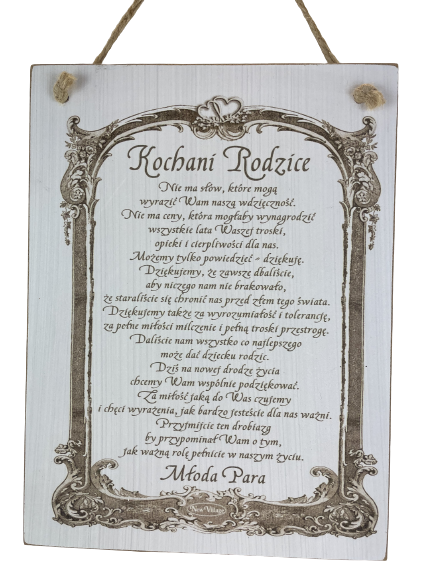 Kochani Rodzice
Nie ma słów, które mogą
wyrazić Wam naszą wdzięczność.
Nie ma ceny, która mogłaby wynagrodzić
wszystkie lata Waszej troski,
opieki i cierpliwości dla nas.
Możemy tylko powiedzieć - dziękuję.
Dziękujemy, że zawsze dbaliście,
aby niczego nam nie brakowało,
że staraliście się chronić nas przed złem tego świata.
Dziękujemy także za wyrozumiałość i tolerancję,
za pełne miłości milczenie i pełną troski przestrogę.
Daliście nam wszystko co najlepszego
może dać dziecku rodzic.
Dziś na nowej drodze życia
chcemy Wam wspólnie podziękować.
Za miłość jaką do Was czujemy
i chęci wyrażenia, jak bardzo jesteście dla nas ważni.
Przyjmijcie ten drobiazg
by przypominał Wam o tym,
jak ważną rolę pełnicie w naszym życiu.
Młoda Para
New Village